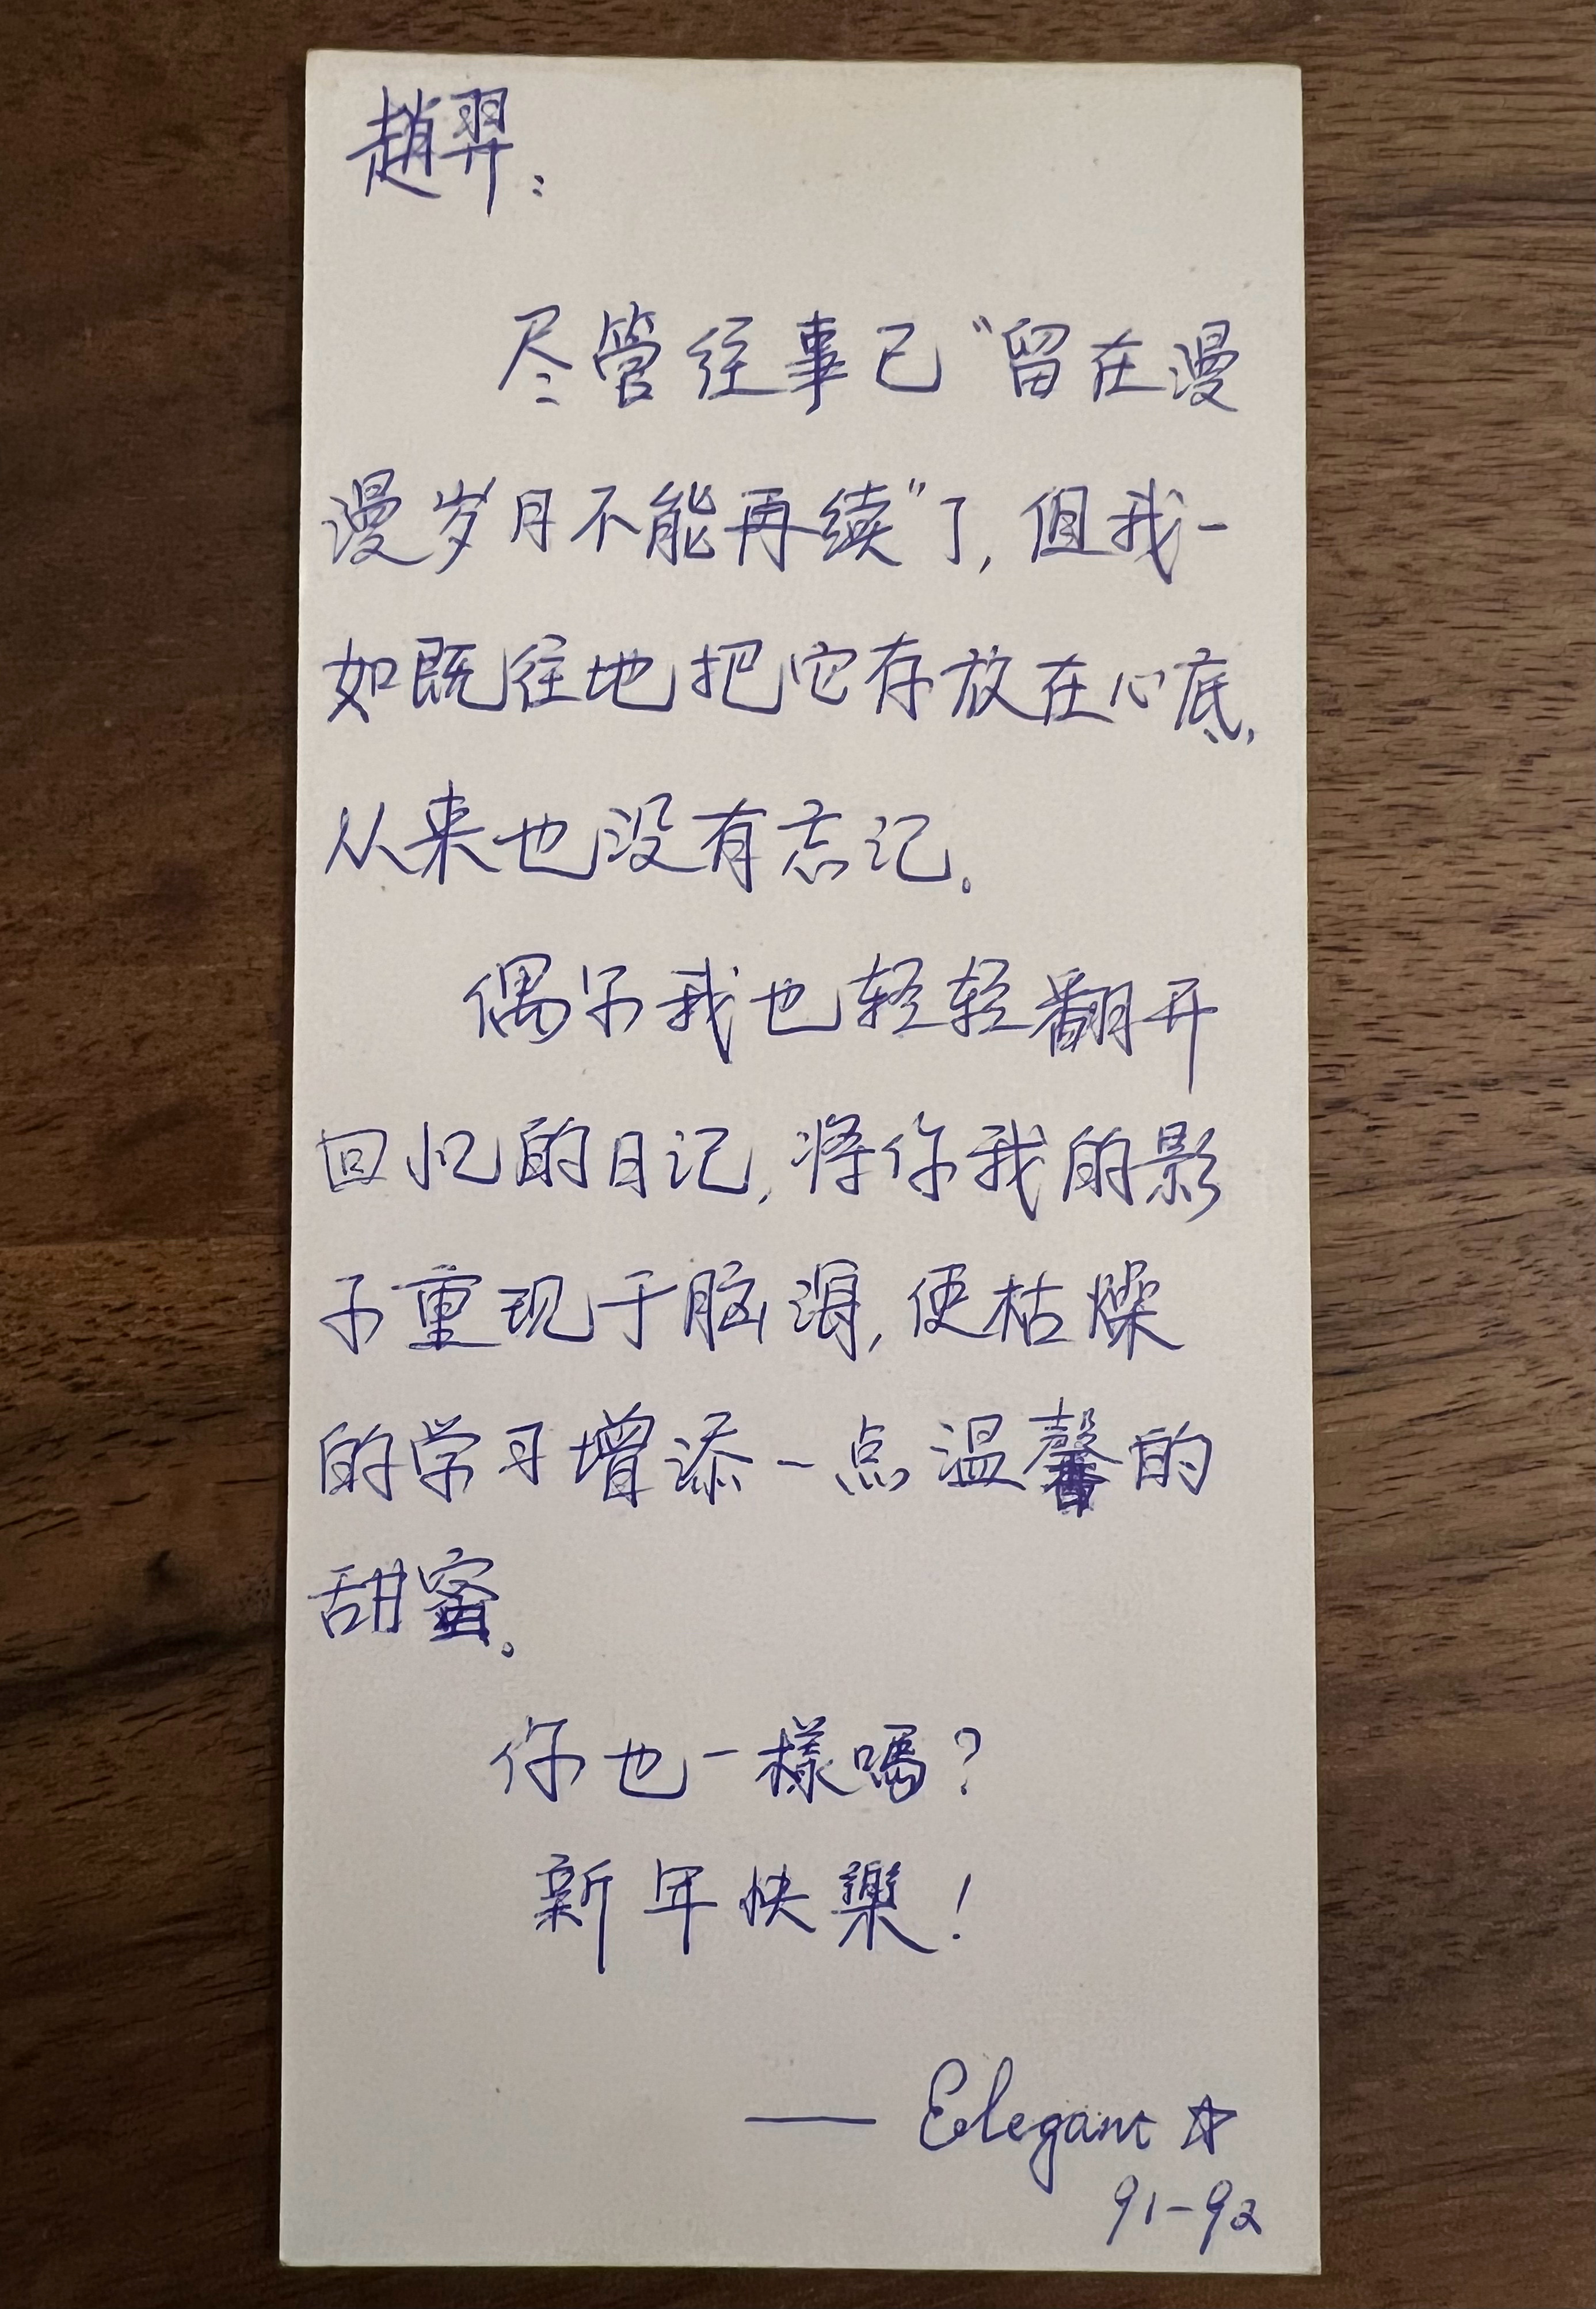 趙羿：
尽管往事已“留在漫
漫岁月不能再续”了，但我一
如既往地把它存放在心底，
从来也没有忘记。
偶尔我也轻轻翻开
回忆的日记，将你我的影
子重现于脑海，使枯燥
的学习增添一点温馨的
甜蜜。
你也一樣嗎？
新年快樂！
—— Elegant ☆
91-92